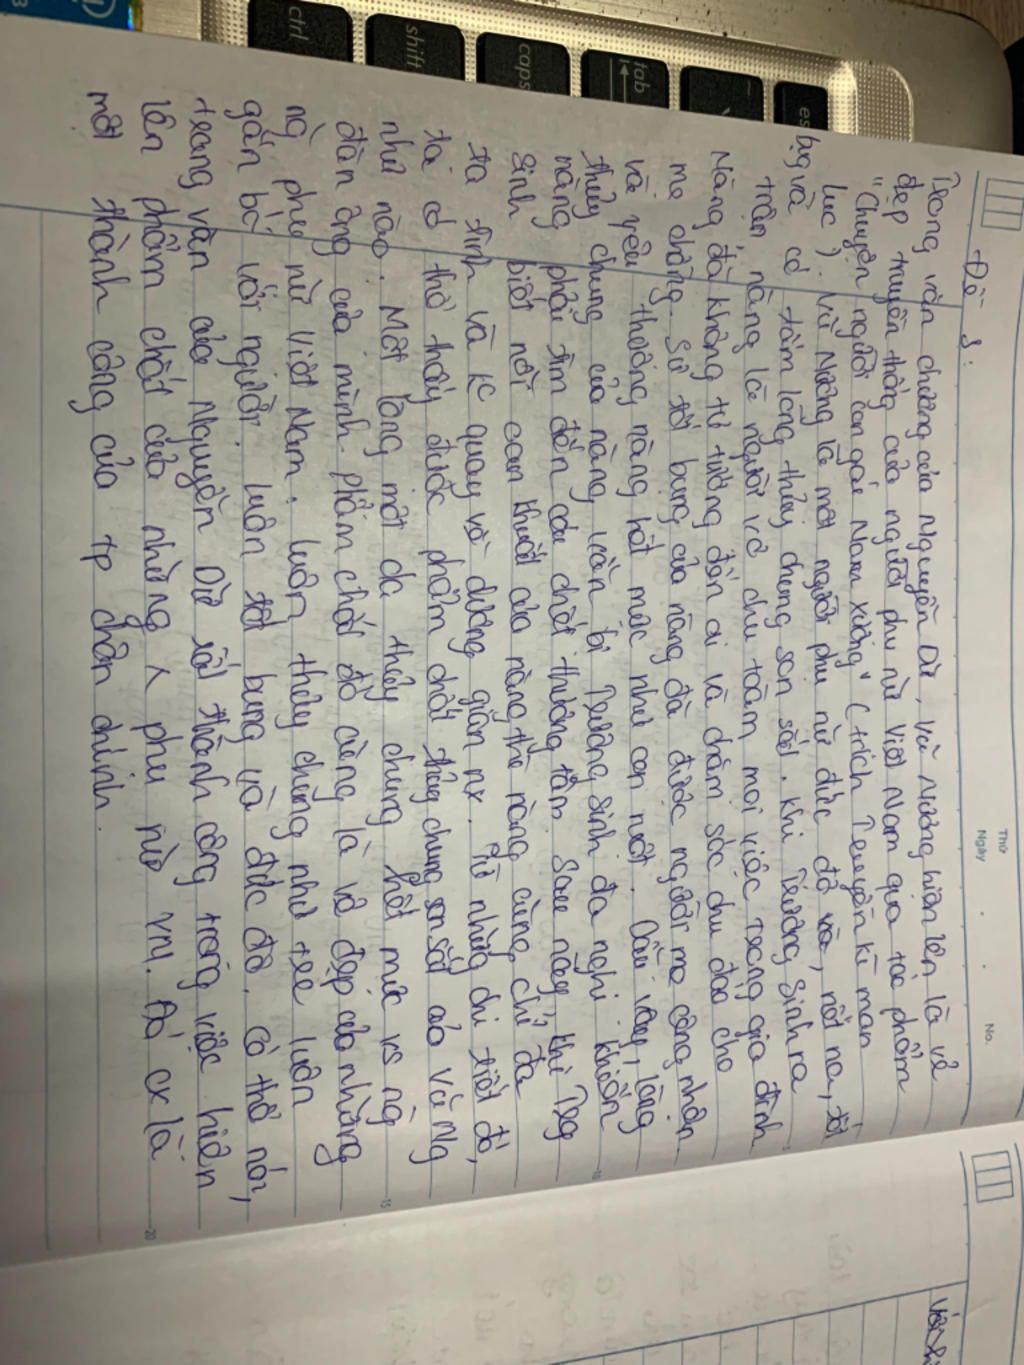 Đề 3:
Thứ
Ngày
No.
Trong văn chương của Nguyễn Dữ, Vũ Nương hiện lên là vẻ
đẹp truyền thống của người phụ nữ Việt Nam qua tác phẩm
"Chuyện người con gái Nam xương" (trích Truyền kì mạn
lục). Vũ Nương là một người phụ nữ đức độ vừa, nết na, tốt
bụng và có tấm lòng thủy chung son sắt. Khi Trương Sinh ra
trận, nàng là người vợ chu toàn mọi việc trong gia đình
Nàng đã không tư tưởng đến ai và chăm sóc chu đáo cho
mẹ chồng. Sự tốt bụng của nàng đã được người mẹ công nhận
và yêu thương nàng hết mực như con một. Dẫu vậy, lòng
thủy chung của nàng vẫn bị Trương Sinh đa nghi khiến
nàng phải tìm đến cái chết thương tâm. Sau này, khi Trg
Sinh biết nỗi oan khuất của nàng, thì nàng cũng chỉ đa
tạ tình và k quay về dương gian nx. Từ những chi tiết đó,
ta có thể thấy được phẩm chất thủy chung son sắt của Vũ Ng
như nào. Một lòng một dạ thủy chung hết mực vs ng
đàn ông của mình. Phẩm chất đó cũng là vẻ đẹp của những
ng phụ nữ Việt Nam, luôn thủy chung như tre luôn
gắn bó với người, luôn tốt bụng và đức độ. Có thể nói,
trang văn của Nguyễn Dữ rất thành công trong việc hiện
lên phẩm chất của những ng phụ nữ VN. Đó cx là
một thành công của tp chân chính.
5
10
15
20
esc
tab
caps
shift
ctrl